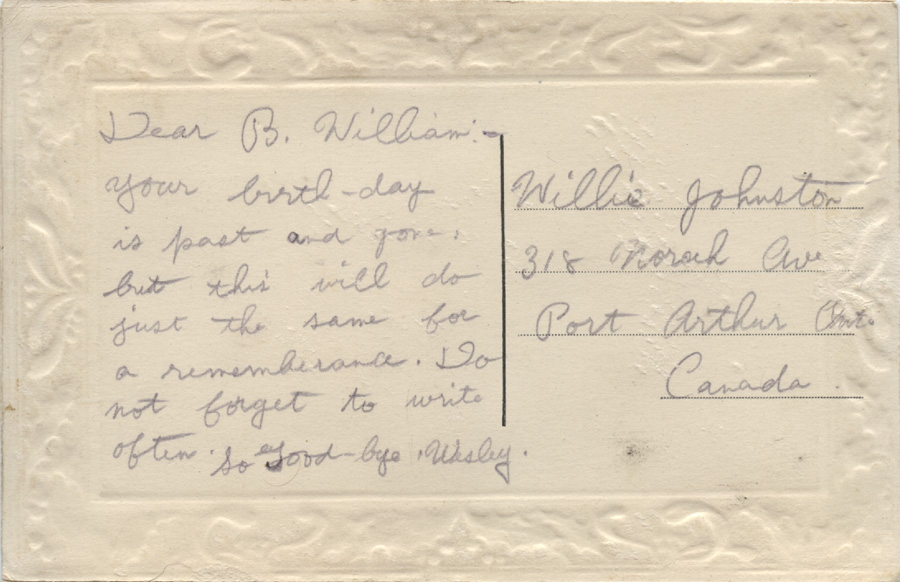 Dear B. William:-
your birth-day
is past and gone.
but this will do
just the same for
a rememberance. Do
not forget to write
often. So Good-bye. Wesley.
Willie Johnston
318 Ave
Port Arthur Ont.
Canada.